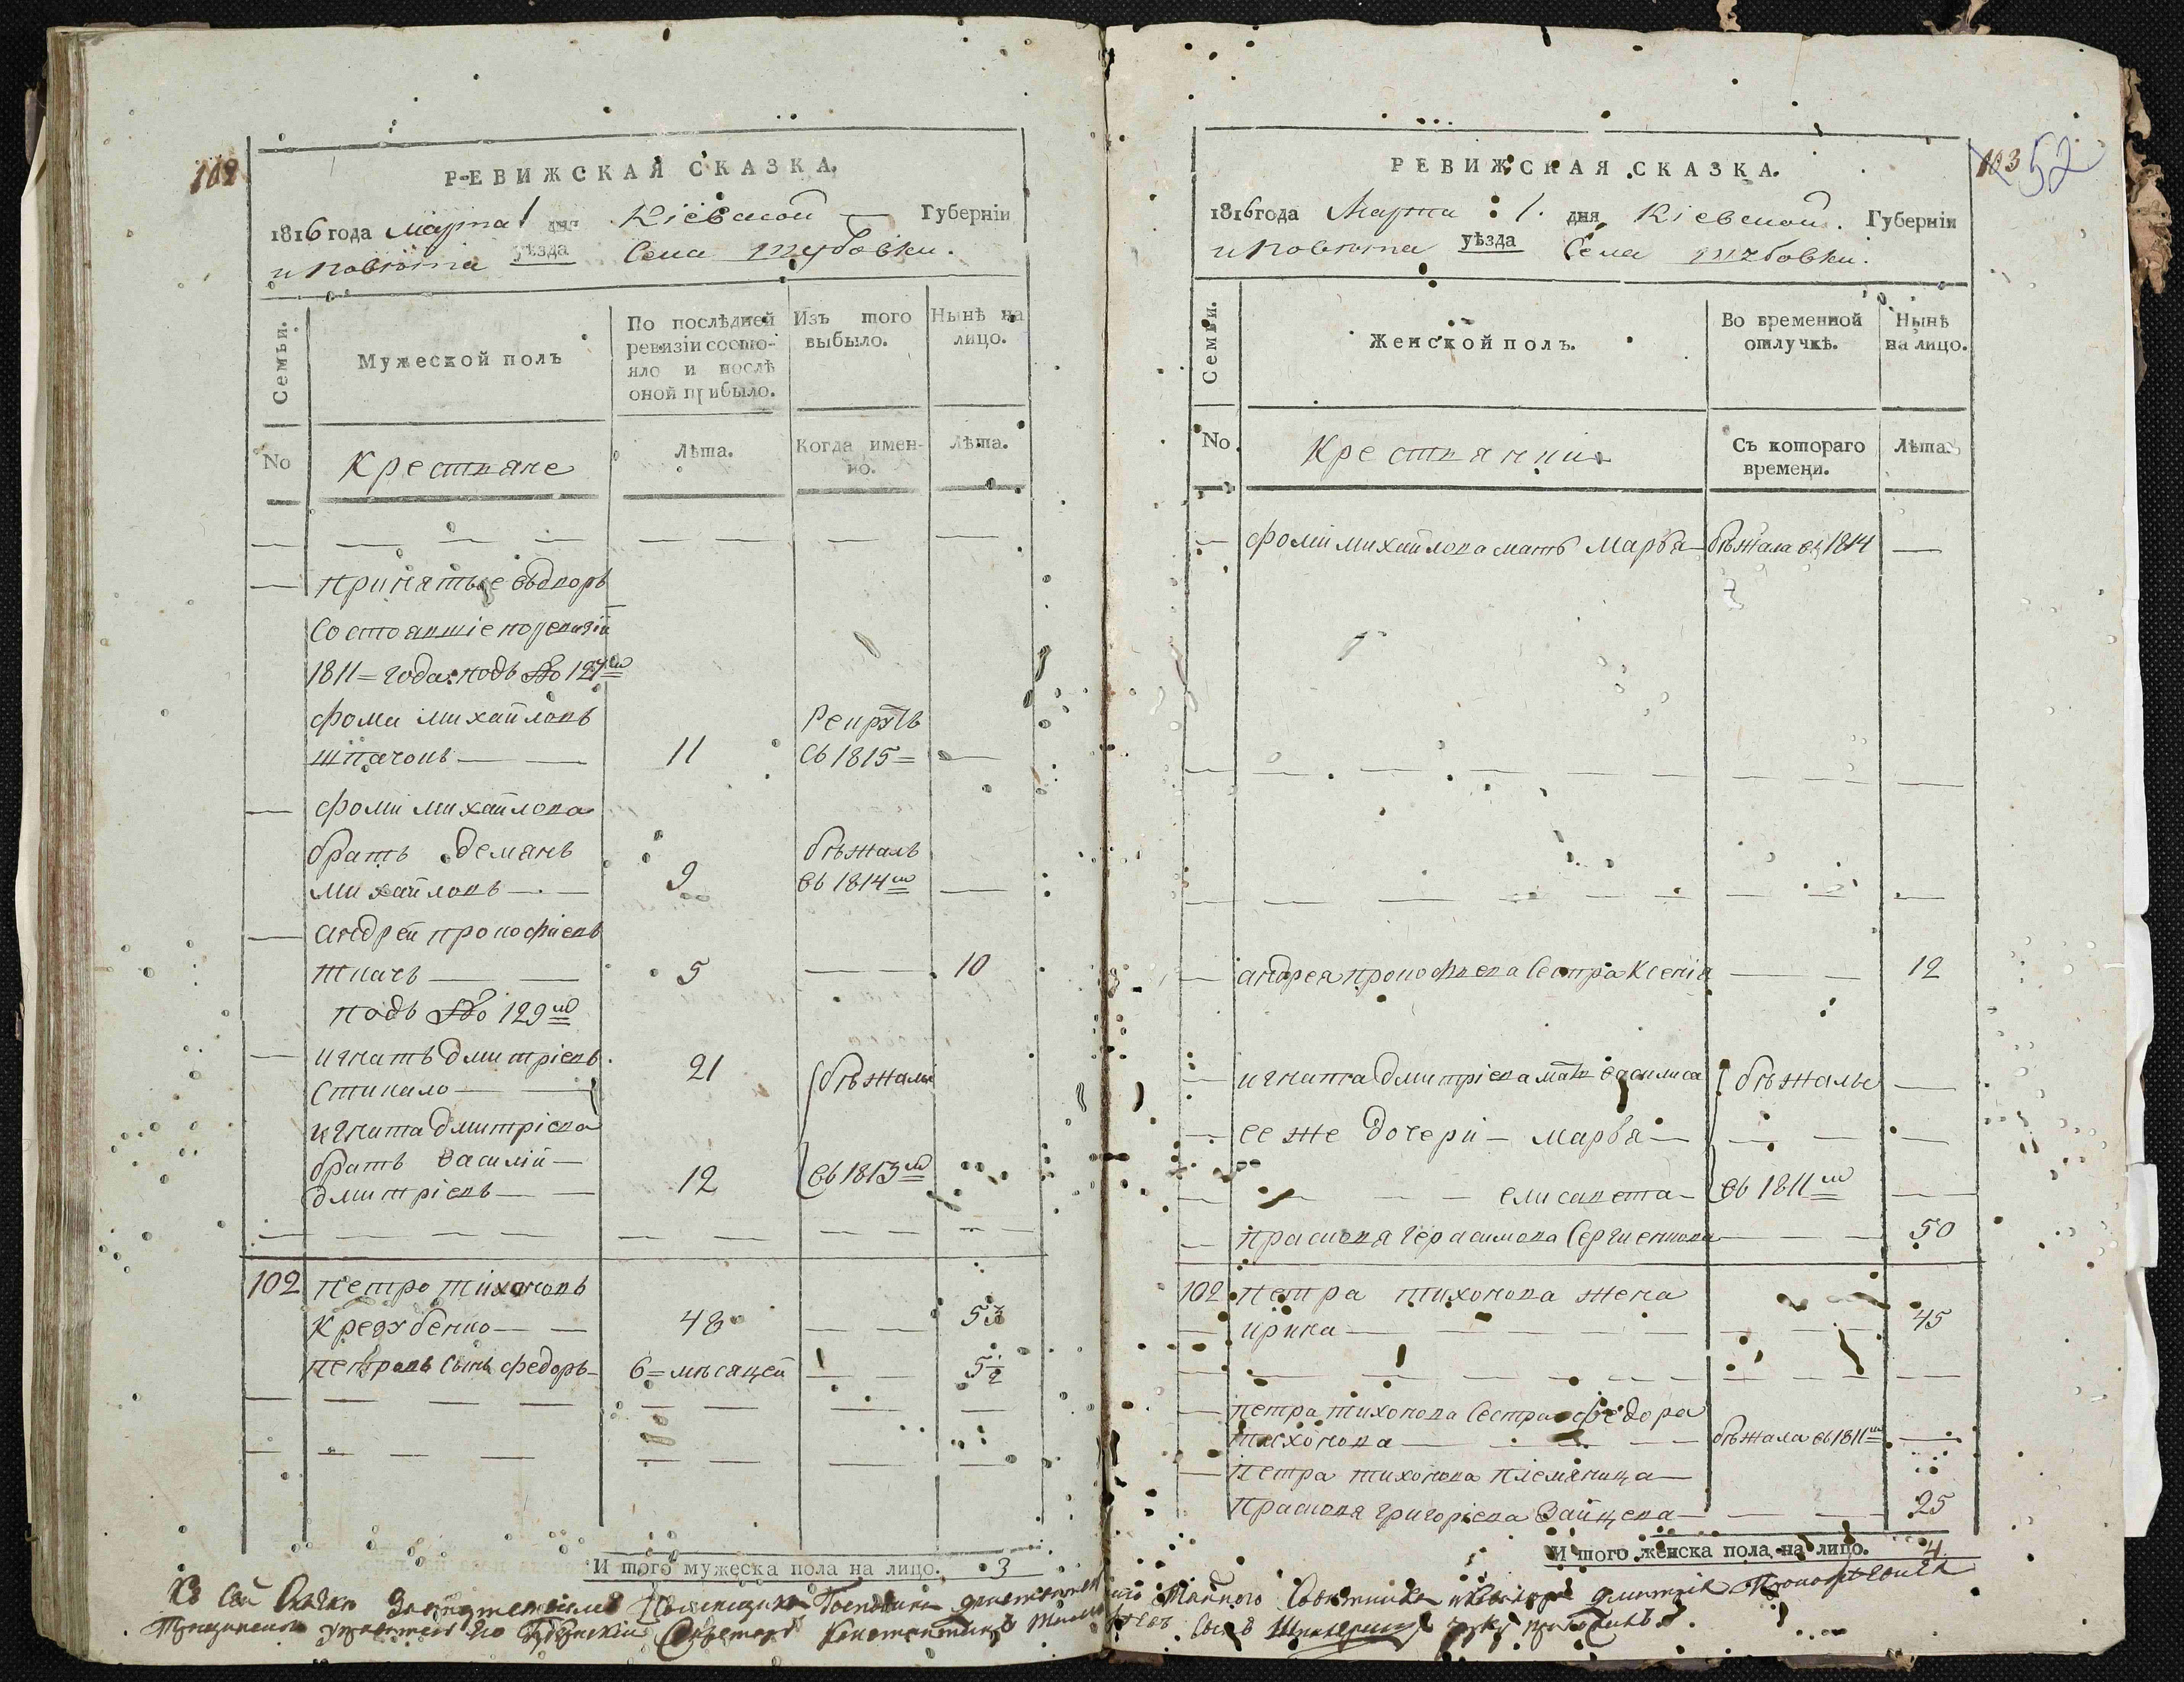 102
РЕВИЖСКАЯ СКАЗКА.
1816 года марта 1 дня Кіевской Губерніи
и повѣта уѣзда Села
Семьи.
Мужеской полъ
По послѣдней ревизіи состояло и послѣ оной прибыло.
Изъ того выбыло.
Нынѣ на лицо.
No
Крестьяне
Лѣта.
Когда именно.
Лѣта.
принятые въ дворъ
состоявшіе по ревизіи
1811 = года подъ No 127 м
фома михайловъ
шпачокъ 11 Рекрутъ съ 1815 =
фоми михайлова
братъ демянъ
михайловъ 9 бѣжалъ въ 1814 м
андрей прокофіевъ
ткачъ 5 10
подъ No 129 м
игнатъ дмитріевъ
Стикало 21 бѣжали
игната дмитріева
братъ василій
дмитріевъ 12 въ 1813 м
102 петро тихоновъ
48 53
петровъ сынъ федоръ 6 = мѣсяцей 5 1/2
И того мужеска пола на лицо. 3
103 52
РЕВИЖСКАЯ СКАЗКА.
1816 года Марта 1. дня Кіевской. Губерніи
и повѣта уѣзда Села
Семьи.
Женской полъ.
Во временной отлучкѣ.
Нынѣ на лицо.
No.
Крестьянки
Съ котораго времени.
Лѣта.
фоми михайлова мать марѳа бѣжала въ 1814
андрея прокофьева сестра Ксенія 12
игната дмитріева мать василиса бѣжалы
ее же дочери марѳа
елисавета въ 1811 м
прасковя герасимова Сергиенкова 50
102 петра тихонова жена
ирина 45
петра тихонова сестра федора
тихонова бѣжала въ 1811 м
петра тихонова племяница
прасковя григоріева Зайцева 25
И того женска пола на лицо. 4
Къ сей Скаскѣ
Тайного Совѣтника